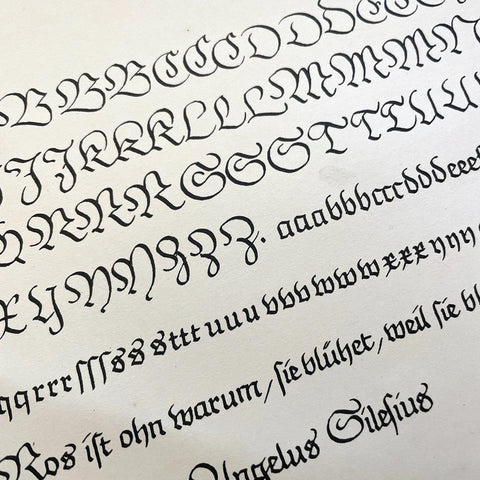 BBBCCCDDDEEE
JJJKKKLLLMMMN
QRRRSSSTTTUUU
XYYYZZZ. aaabbbcccdddeee
qqrrrſſſsssttt uuu vvv www xxx yyy
Ros iſt ohn warum, ſie blühet, weil ſie bl
Angelus Sileſius